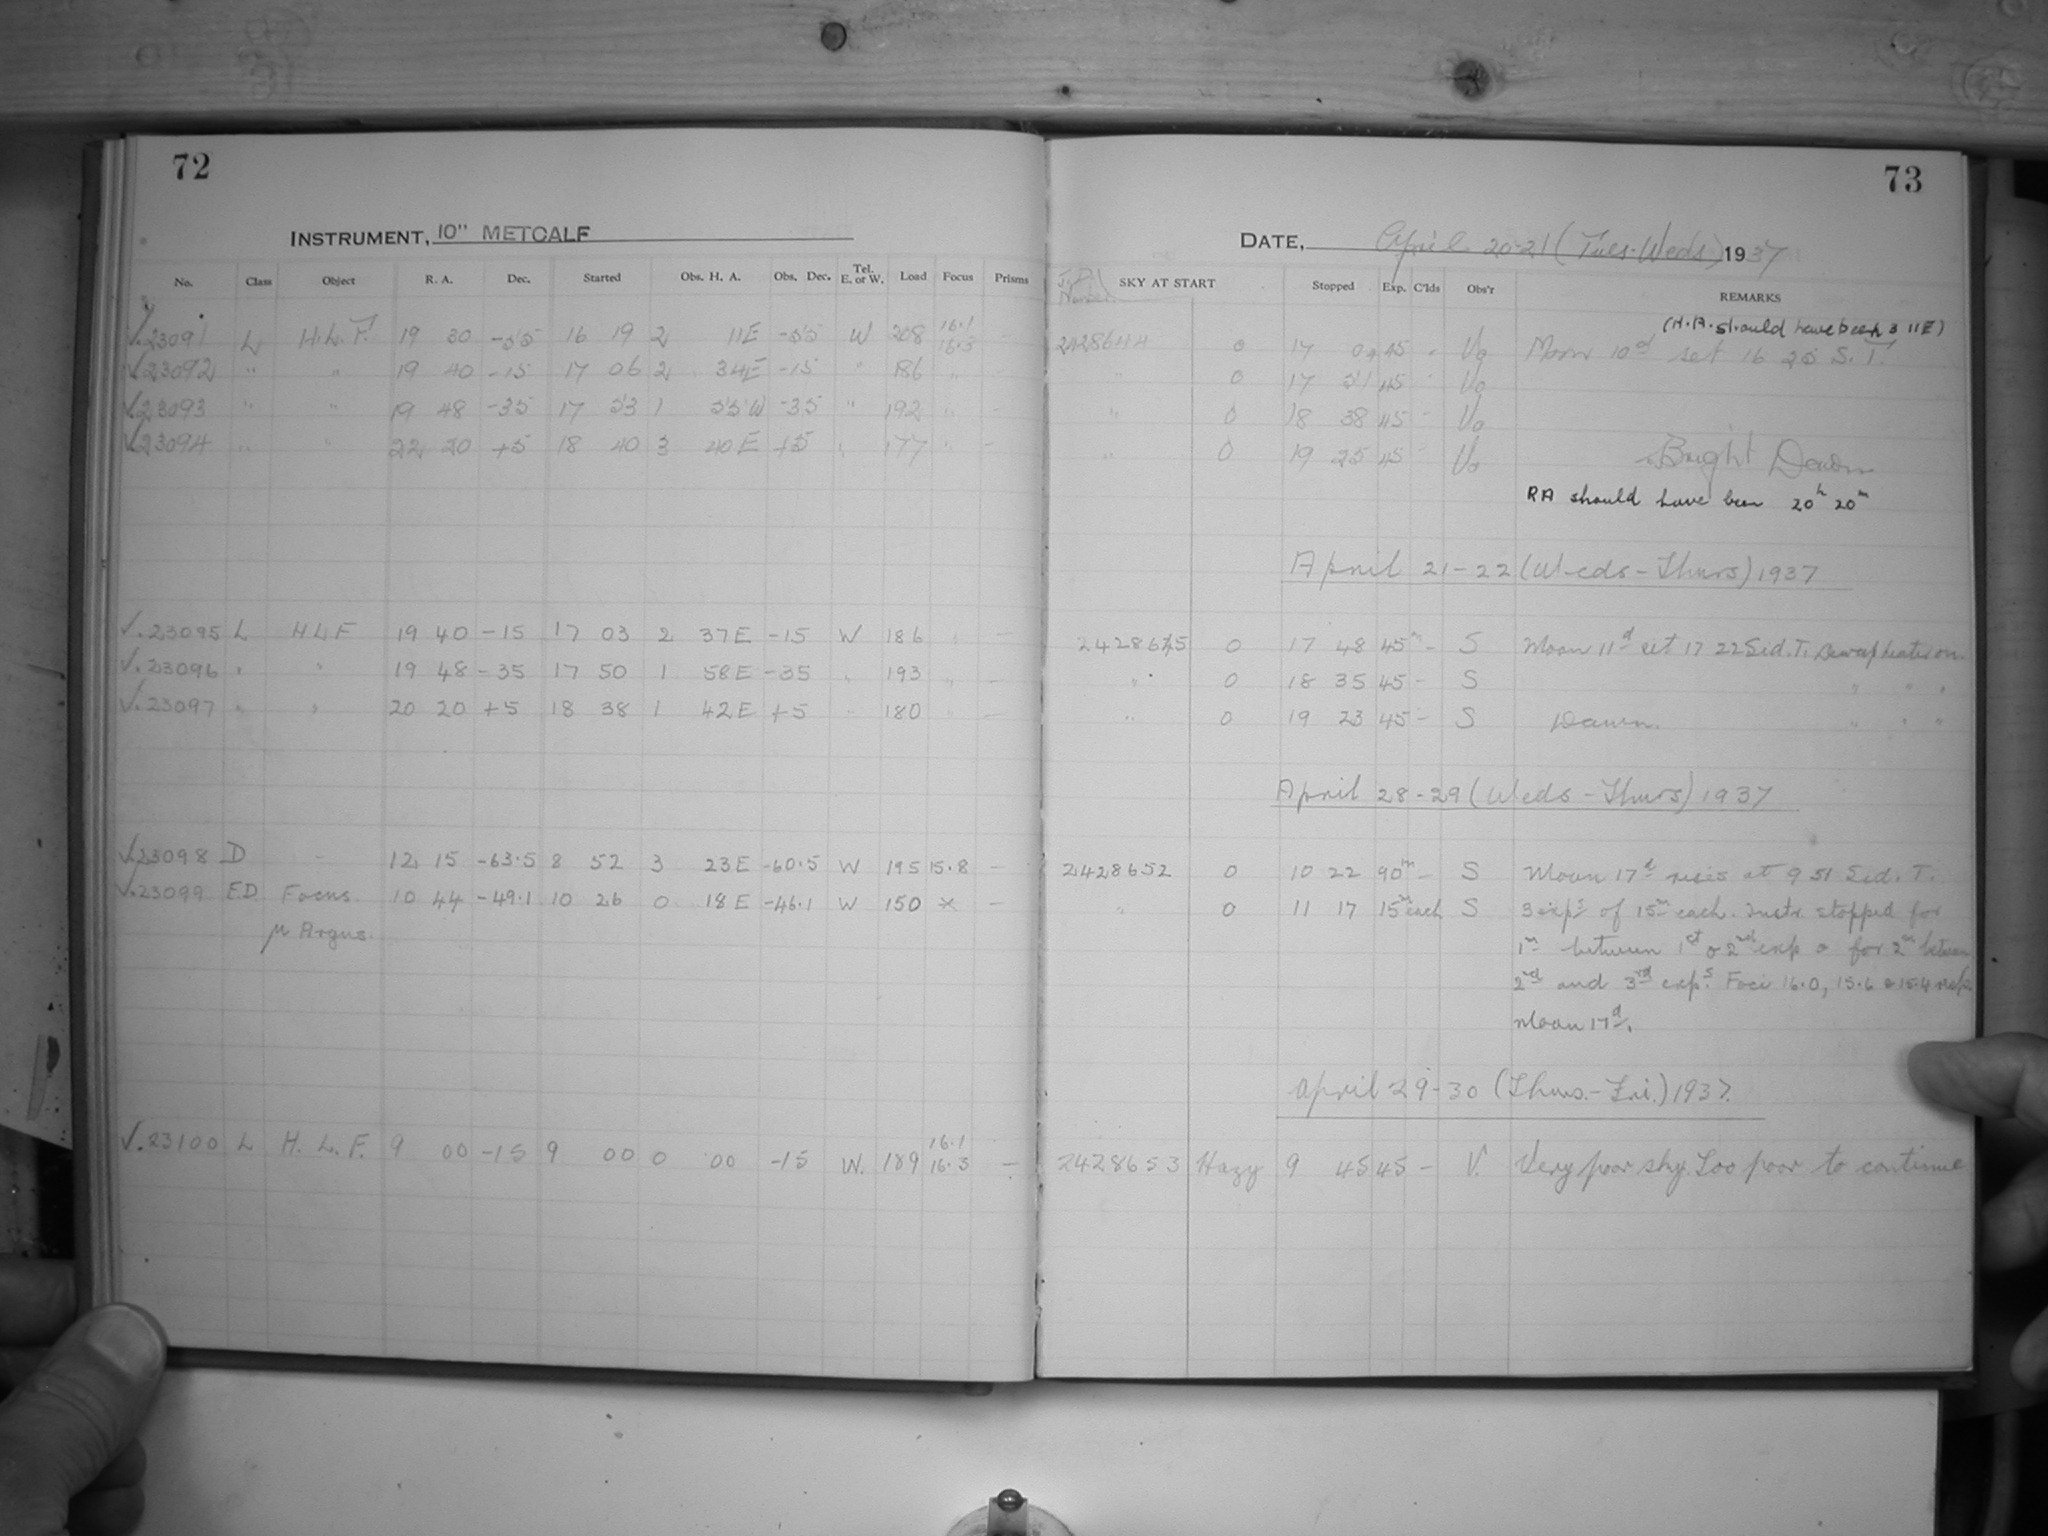 72
73
INSTRUMENT, 10" METCALF
DATE, April 20-21 (Tues-Weds) 1937
No. Class Object R. A. Dec. Started Obs. H. A. Obs. Dec. Tel. E. or W. Load Focus Prisms
J.D. Number SKY AT START Stopped Exp. C'lds Obs'r REMARKS
(H.A. should have been 3 11E)
√.23091 L H.L.F. 19 30 -55 16 19 2 11E -55 W 208 16.1 16.3 - 2428644 0 17 04 45 - Vo Moon 10d set 16 25 S.T.
√23092 " " 19 40 -15 17 06 2 34E -15 " 186 " - " 0 17 51 45 - Vo
√.23093 " " 19 48 -35 17 53 1 55W -35 " 192 " - " 0 18 38 45 - Vo
√23094 " " 22 20 +5 18 40 3 40E +5 " 177 " - " 0 19 25 45 - Vo Bright Dawn
RA should have been 20h 20m
April 21-22 (Weds-Thurs) 1937
√.23095 L HLF 19 40 -15 17 03 2 37E -15 W 186 " - 2428645 0 17 48 45m - S Moon 11d set 17 22 Sid. T. Dewcap heater on
√.23096 " " 19 48 -35 17 50 1 58E -35 " 193 " - " 0 18 35 45 - S " " "
√.23097 " " 20 20 +5 18 38 1 42E +5 " 180 " - " 0 19 23 45 - S Dawn. " " "
April 28-29 (Weds-Thurs) 1937
√23098 D - 12 15 -63.5 8 52 3 23E -60.5 W 195 15.8 - 2428652 0 10 22 90m - S Moon 17d rises at 9 51 Sid. T.
√.23099 ED Focus 10 44 -49.1 10 26 0 18E -46.1 W 150 × - " 0 11 17 15m each S 3 exps of 15m each. Instr. stopped for
μ Argus. 1m between 1st & 2nd exp & for 2m between
2nd and 3rd exps. Foci 16.0, 15.6 & 15.4 resp.
Moon 17d.
April 29-30 (Thurs.-Fri.) 1937.
√.23100 L H.L.F. 9 00 -15 9 00 0 00 -15 W. 189 16.1 16.3 - 2428653 Hazy 9 45 45 - V. Very poor sky. Too poor to continue